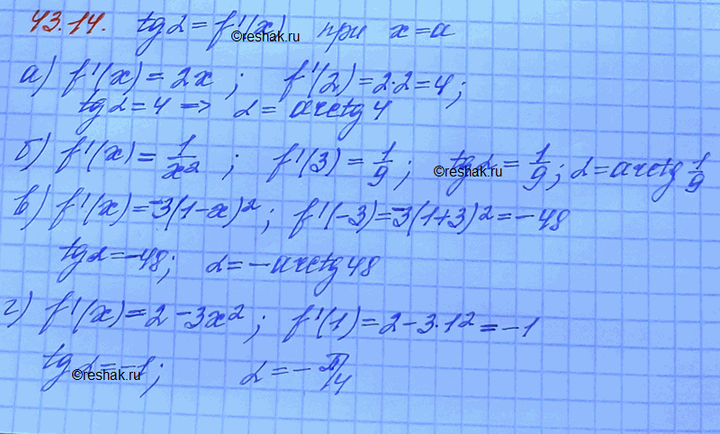 43.14. tg α = f'(x) при x = a
©reshak.ru
а) f'(x) = 2x ; f'(2) = 2·2 = 4 ;
tg α = 4 => α = arctg 4
б) f'(x) = 1/x² ; f'(3) = 1/9 ; tg α = 1/9 ; α = arctg 1/9
©reshak.ru
в) f'(x) = -3(1-x)² ; f'(-3) = -3(1+3)² = -48
tg α = -48 ; α = -arctg 48
г) f'(x) = 2 - 3x² ; f'(1) = 2 - 3·1² = -1
tg α = -1 ; α = - π/4
©reshak.ru